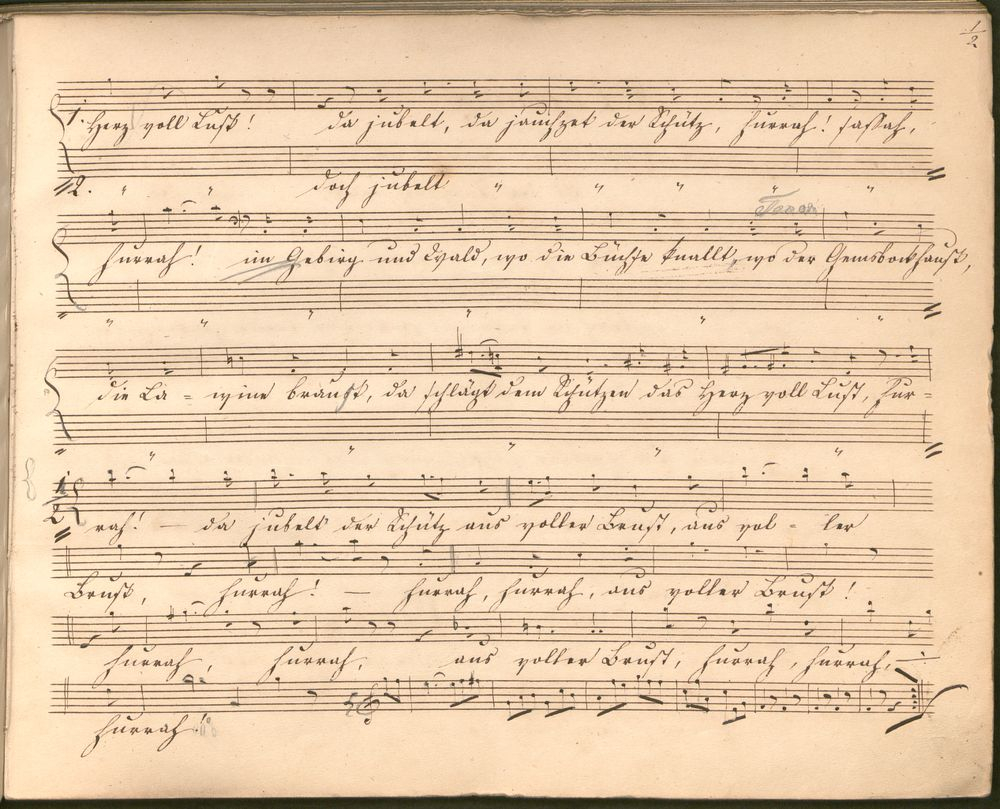 1/2
1. Herz voll Lust! da jubelt, da jauchzet der Schütz, hurrah! sassah,
2. " " doch jubelt " " " " "
Tenor
hurrah! im Gebirg und Wald, wo die Büchse knallt, wo der Gemsbock haust,
" " " " " "
die La - wine braust, da schlägt dem Schützen das Herz voll Lust, hur-
" " " " "
1.
2.
rah! — da jubelt der Schütz aus voller Brust, aus vol - ler
Brust, hurrah! — hurrah, hurrah, aus voller Brust!
hurrah, hurrah, aus voller Brust, hurrah, hurrah, —
hurrah!